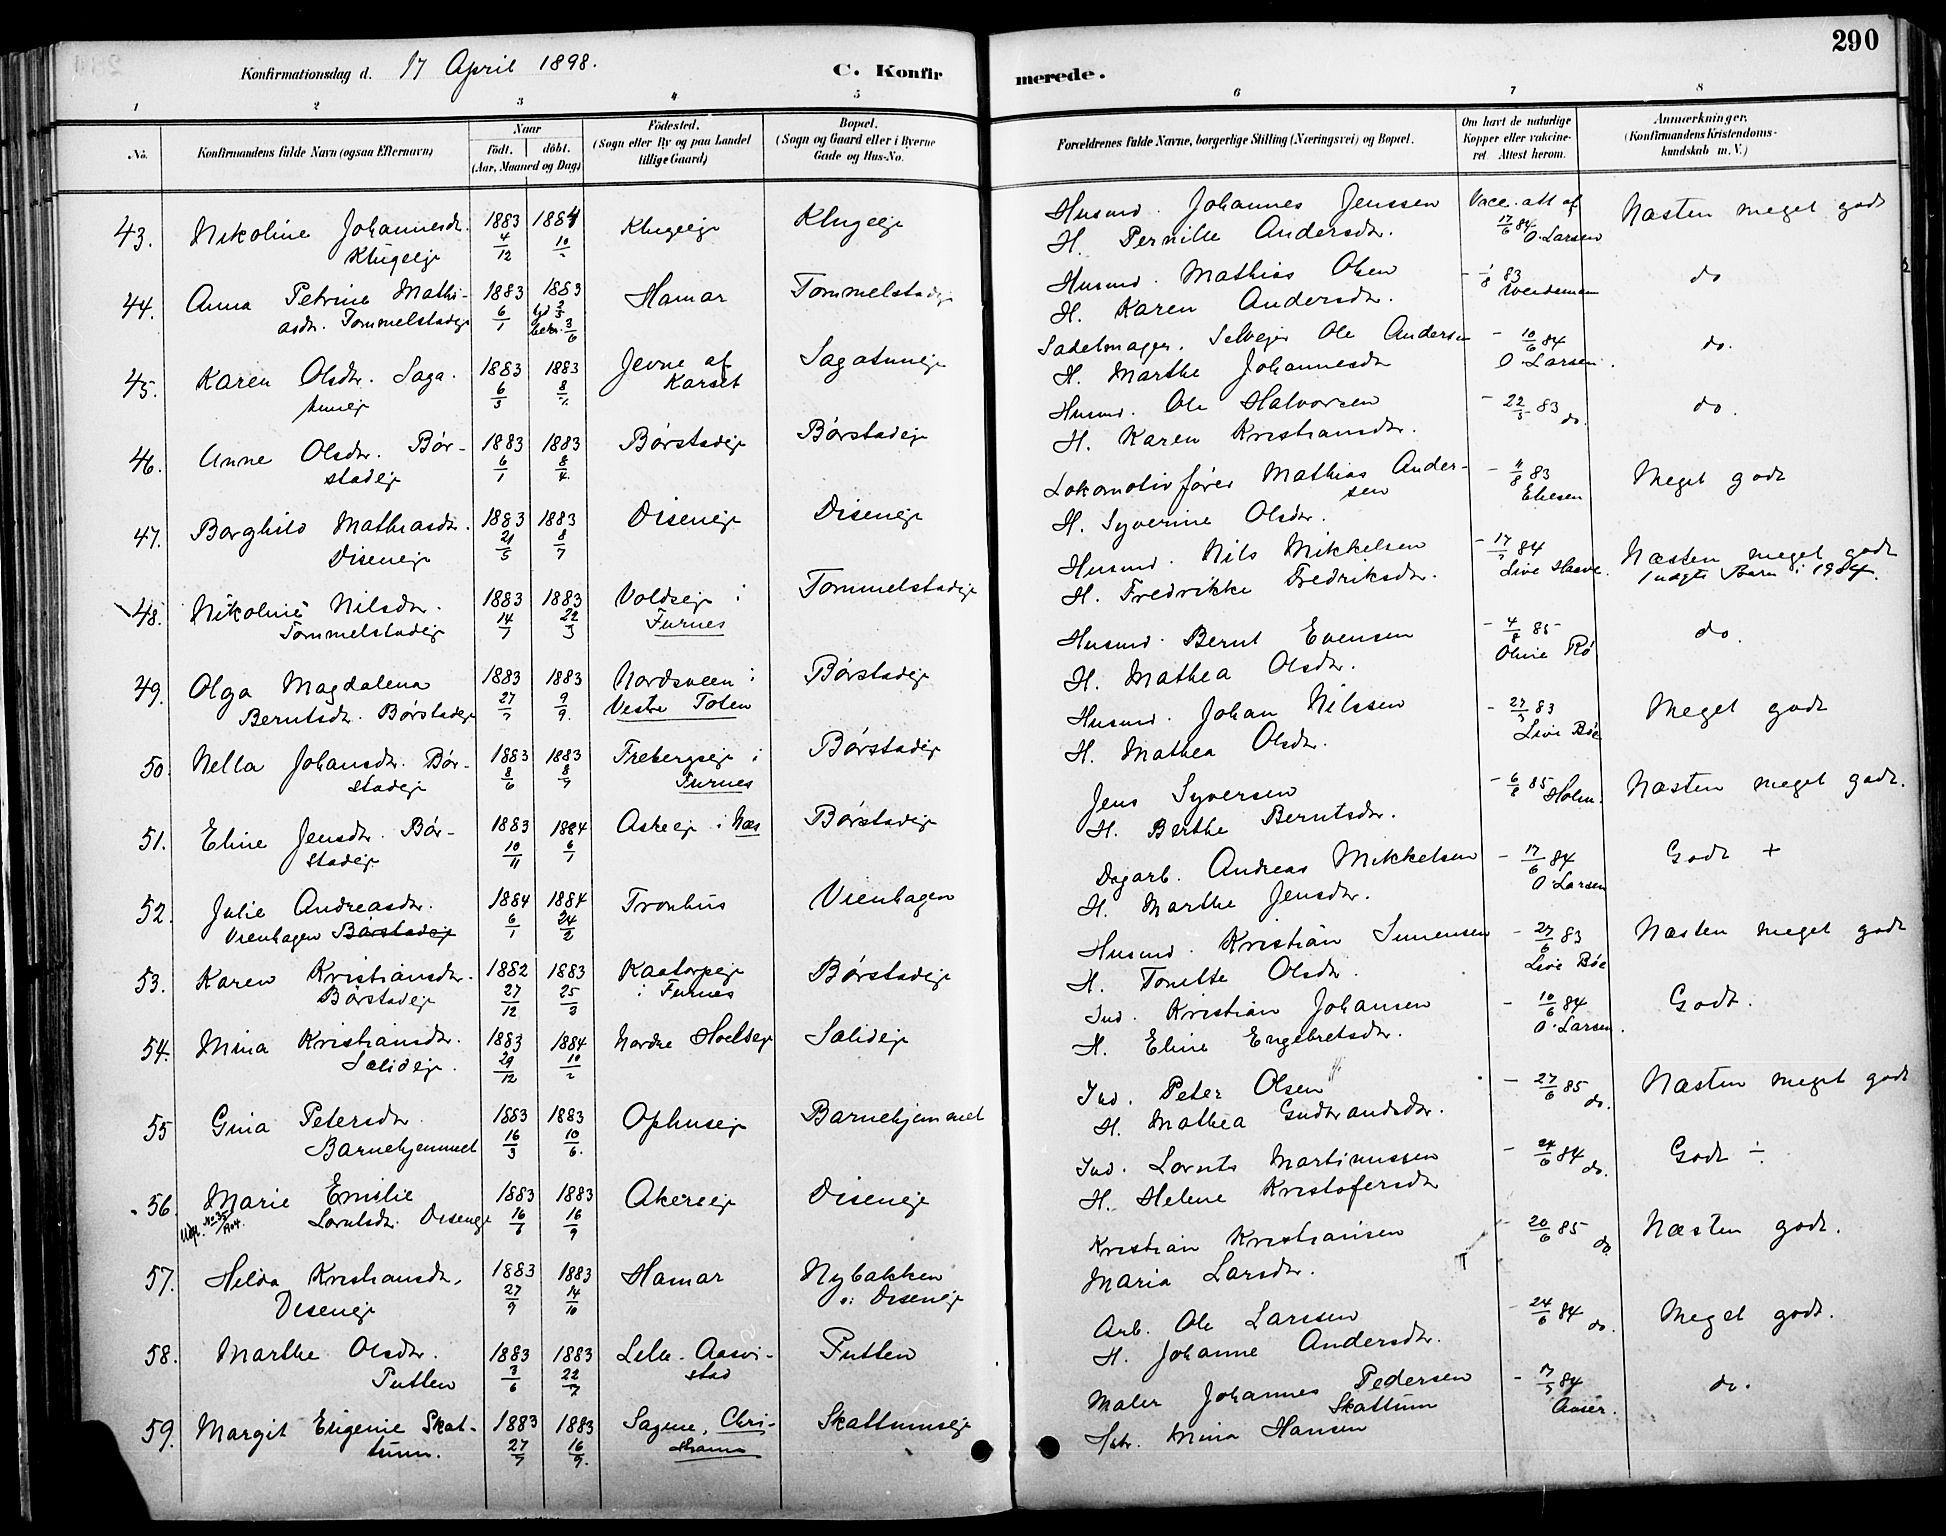 290
Konfirmationsdag d. 17 April 1898.
C. Konfirmerede.
1 2 3 4 5 6 7 8
No.
Konfirmandens fulde Navn (ogsaa Efternavn)
Naar
födt. döbt.
(Aar, Maaned og Dag)
Födested.
(Sogn eller By og paa Landet
tillige Gaard)
Bopæl.
(Sogn og Gaard eller i Byerne
Gade og Hus-No.
Forældrenes fulde Navne, borgerlige Stilling (Næringsvei) og Bopæl.
Om havt de naturlige
Kopper eller vakcine-
ret Attest herom.
Anmærkninger.
(Konfirmandens Kristendoms-
kundskab m. V.)
43. Nikoline Johannesdr. 1883 1884 Klugeeje Klugeeje Husmd. Johannes Jenssen Vacc. att af Næsten meget godt
Klugeeje 4/12 10/2 H. Pernille Andersdr. 17/6 84 O. Larsen
44. Anna Petrine Mathi- 1883 1883 Hamar Tommelstadeje Husmd. Mathias Olsen 83 do
asdr. Tommelstadeje 6/1 3/6 H. Karen Andersdr.
45. Karen Olsdr. Saga- 1883 1883 Jevne af Sagatuneje Sadelmager. Selvejer Ole Andersen - 10/6 84 do.
tuneje 6/3 8/ Karset H. Marthe Johannesdr O Larsen.
46. Anne Olsdr. Bør- 1883 1883 Børstadeje Børstadeje Husmd. Ole Halvorsen - 22/5 83 do. do.
stadeje 6/1 8/4 H. Karen Kristiansdr.
47. Borghild Mathiasdr. 1883 1883 Diseneje Diseneje Lokomotivfører Mathias Ander- - 11/8 83 Meget godt
Diseneje 21/5 8/7 sen
H. Syverine Olsdr.
48. Nikoline Nilsdr. 1883 1883 Voldseje i Tommelstadeje Husmd. Nils Mikkelsen - 17/ 84 Næsten meget godt
Tommelstadeje 14/1 22/3 Furnes H. Fredrikke Fredriksdr.
49. Olga Magdalena 1883 1883 Nordsveen i Børstadeje Husmd. Bernt Evensen - 4/8 85 do.
Berntsdr. Børstadeje 27/7 9/9. Vestre Toten H. Mathea Olsdr. Oline Rø
50. Nella Johansdr. Bør- 1883 1883 Frebergseje i Børstadeje Husmd. Johan Nilssen - 27/ 83 Meget godt
stadeje 8/6 8/7 Furnes H. Mathea Olsdr. Live Bøe
51. Eline Jensdr. Bør- 1883 1884 Askeeje i Næs Børstadeje Jens Syversen - 6/8 85 Holm. Næsten meget godt.
stadeje 10/11 6/1 H. Berthe Berntsdr.
52. Julie Andreasdr. 1884 1884 Tronhus Vienhagen Dagarb. Andreas Mikkelsen - 17/6 84 Godt +
Vienhagen Børstadeje 6/1 24/2 H. Marthe Jensdr. O. Larsen
53. Karen Kristiansdr. 1882 1883 Kaatorpeje Børstadeje Husmd. Kristian Simensen - 27/6 83 Næsten meget godt
Børstadeje 27/12 25/3 i Furnes H. Tonette Olsdr. Live Bøe
54. Mina Kristiansdr. 1883 1884 Nordre Hoelseje Salideje Ind. Kristian Johansen - 10/6 84 Godt.
Salideje. 29/12 10/2 H. Eline Engebretsdr. O. Larsen.
55 Gina Petersdr. 1883 1883 Ophuseje Barnehjemmet Ind. Peter Olsen - 27/6 85 do. Næsten meget godt
Barnehjemmet 16/3 10/6. H. Mathea Gudbrandsdr.
56. Marie Emilie 1883 1883 Akerseje Diseneje Ind. Lornts Martinussen - 24/6 84 do. Godt ÷
Lorntsdr. Diseneje 16/6 16/9 H. Helene Kristofersdr
57. Hilda Kristiansdr. 1883 1883 Hamar Nybakken Kristian Kristiansen - 20/6 85 do Næsten godt.
Diseneje 27/9 14/10 Diseneje Maria Larsdr.
58. Marthe Olsdr. 1883 1883 Lille-Aasvi- Putten Arb. Ole Larssen - 24/6 84 do. Meget godt.
Putten 3/6 22/7 stad H. Johanne Andersdr.
59. Margit Eugenie Skat- 1883 1883 Sagene, Chri- Skattumseje Maler Johannes Pedersen - 84 do.
tum. 27/7 16/9. stiania Skattum
Mina Hansen